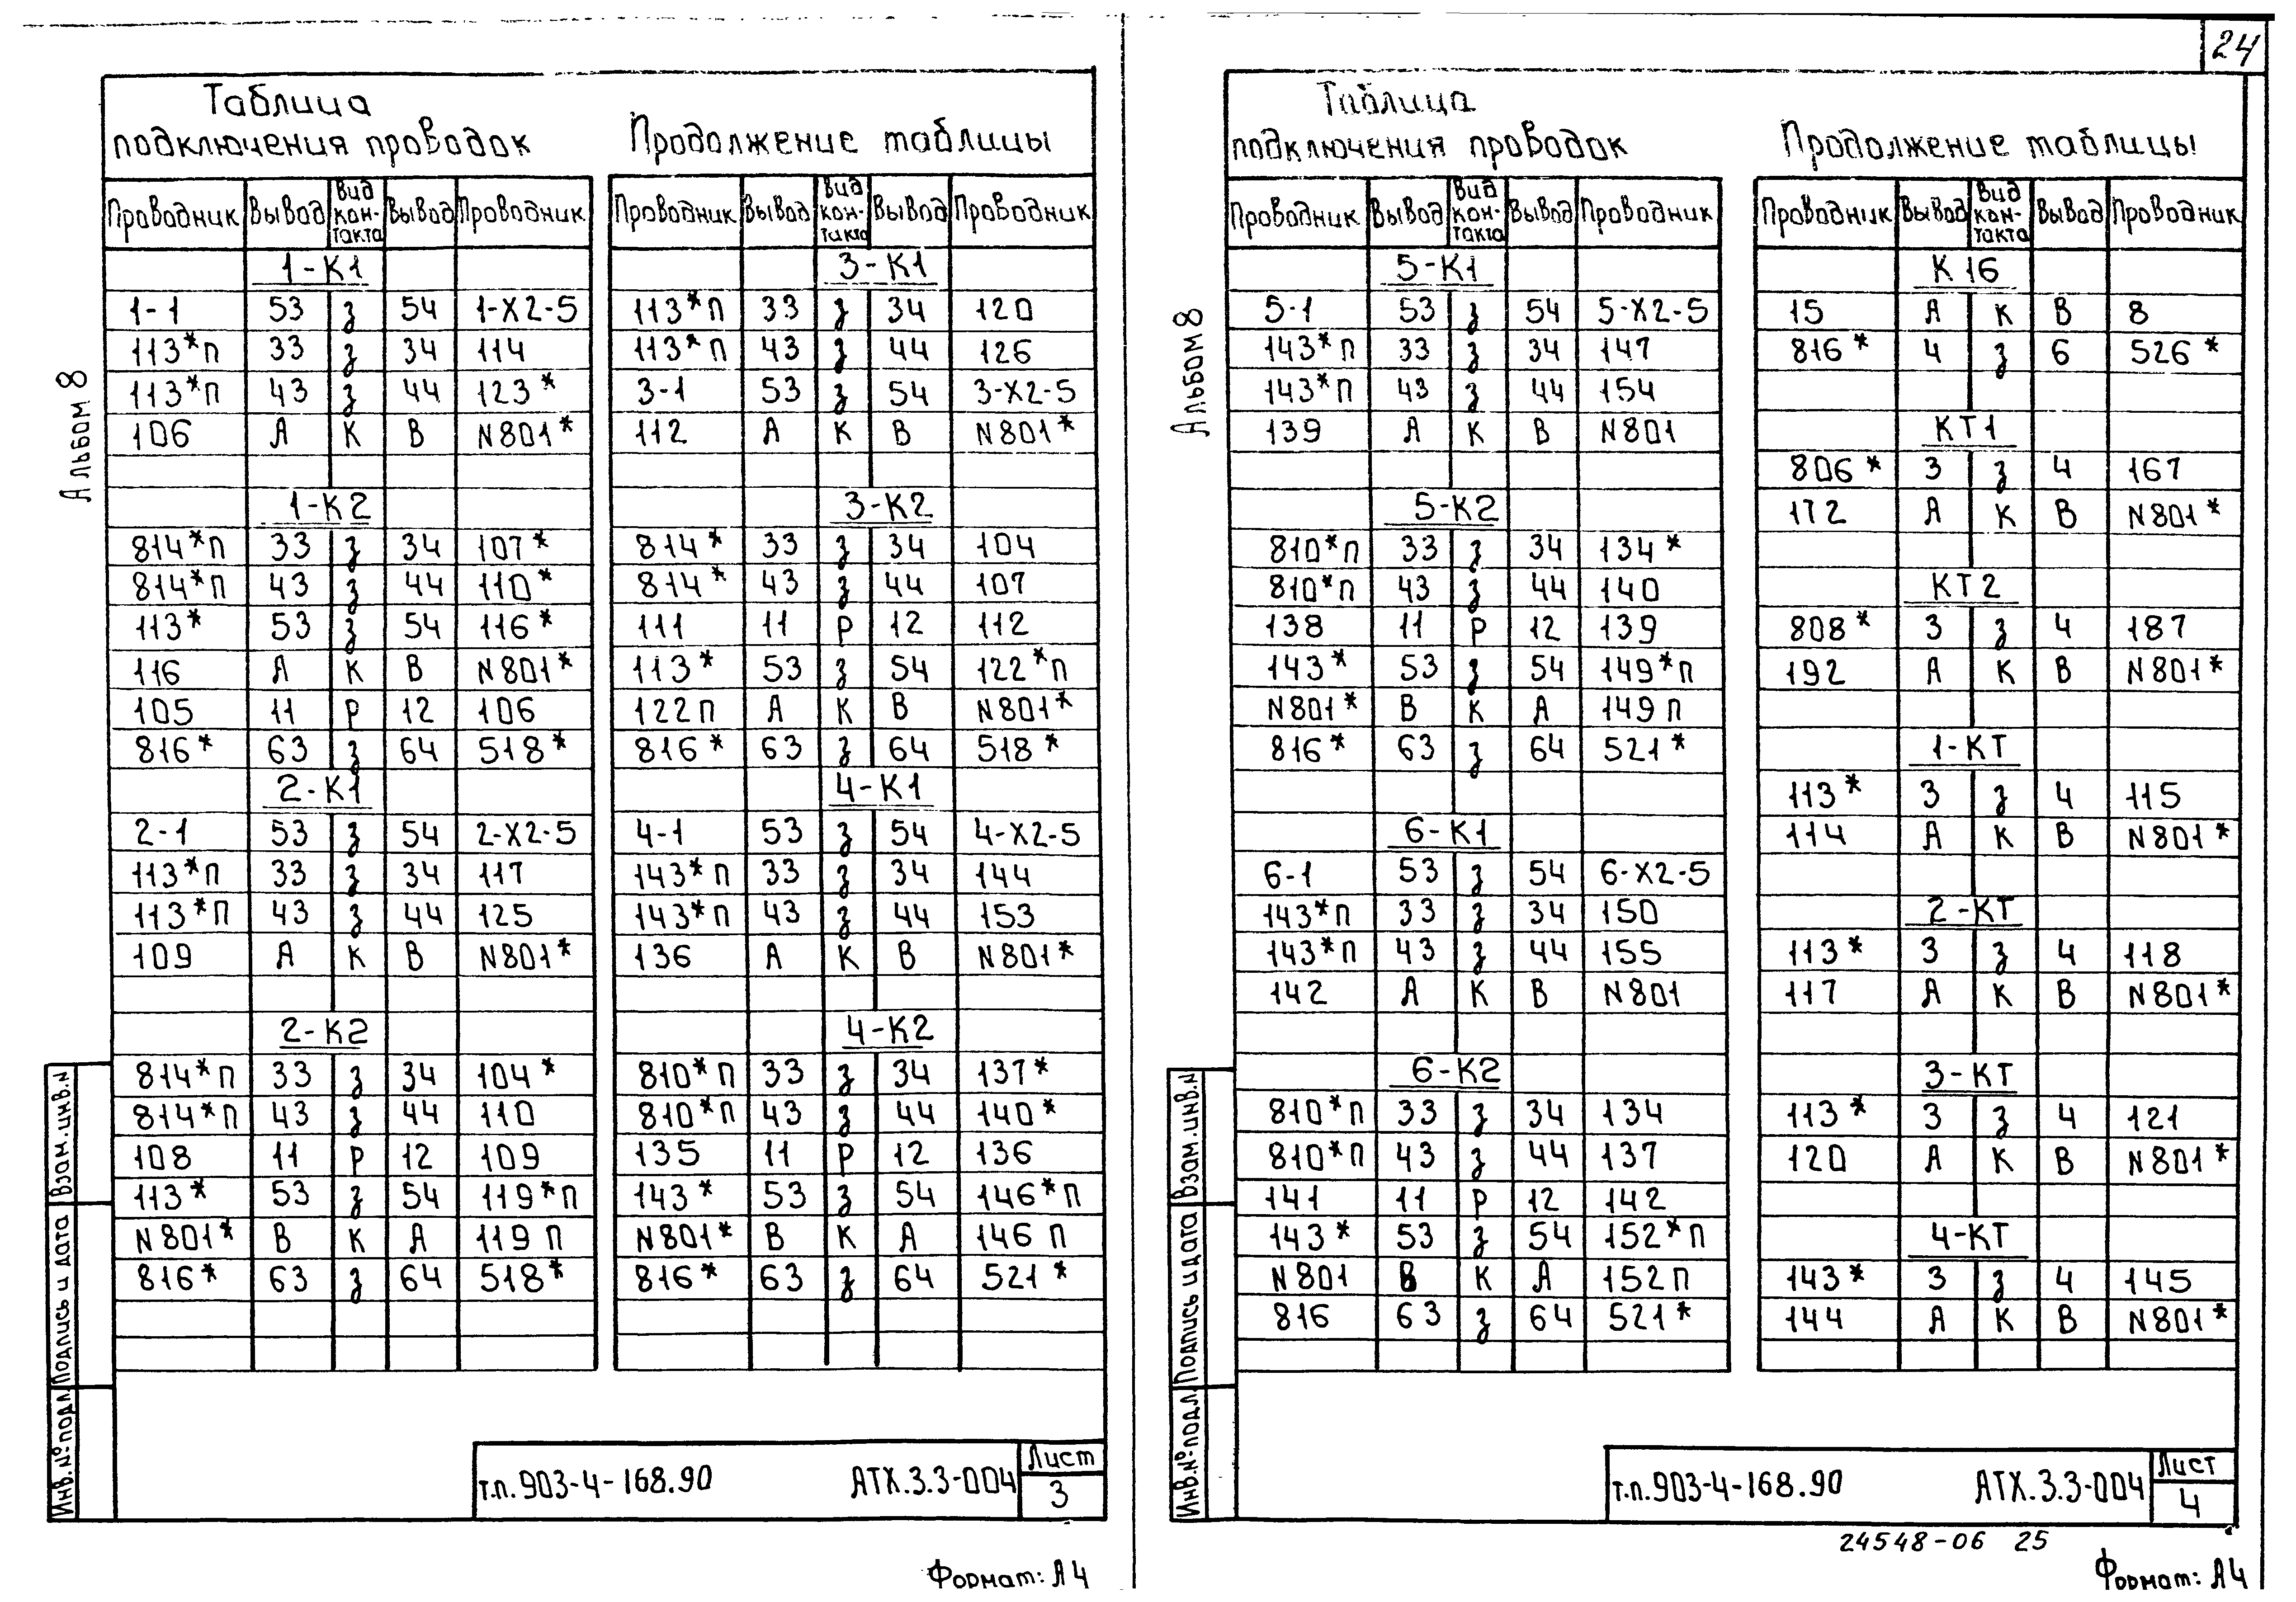 24
Альбом 8
Таблица
подключения проводок
Проводник Вывод Вид контакта Вывод Проводник
1-К1
1-1 53 з 54 1-Х2-5
113*П 33 з 34 114
113*П 43 з 44 123*
106 А К В N801*
1-К2
814*П 33 з 34 107*
814*П 43 з 44 110*
113* 53 з 54 116*
116 А К В N801*
105 11 Р 12 106
816* 63 з 64 518*
2-К1
2-1 53 з 54 2-Х2-5
113*П 33 з 34 117
113*П 43 з 44 125
109 А К В N801*
2-К2
814*П 33 з 34 104*
814*П 43 з 44 110
108 11 Р 12 109
113* 53 з 54 119*П
N801* В К А 119 П
816* 63 з 64 518*
Продолжение таблицы
Проводник Вывод Вид контакта Вывод Проводник
3-К1
113*П 33 з 34 120
113*П 43 з 44 126
3-1 53 з 54 3-Х2-5
112 А К В N801*
3-К2
814* 33 з 34 104
814* 43 з 44 107
111 11 Р 12 112
113* 53 з 54 122*П
122П А К В N801*
816* 63 з 64 518*
4-К1
4-1 53 з 54 4-Х2-5
143*П 33 з 34 144
143*П 43 з 44 153
136 А К В N801*
4-К2
810*П 33 з 34 137*
810*П 43 з 44 140*
135 11 Р 12 136
143* 53 з 54 146*П
N801* В К А 146 П
816* 63 з 64 521*
Инв.№подл. Подпись и дата Взам.инв.N
т.п.903-4-168.90 АТХ.3.3-004 Лист
3
Формат: А4
Альбом 8
Таблица
подключения проводок
Проводник Вывод Вид контакта Вывод Проводник
5-К1
5-1 53 з 54 5-Х2-5
143*П 33 з 34 147
143*П 43 з 44 154
139 А К В N801
5-К2
810*П 33 з 34 134*
810*П 43 з 44 140
138 11 Р 12 139
143* 53 з 54 149*П
N801* В К А 149 П
816* 63 з 64 521*
6-К1
6-1 53 з 54 6-Х2-5
143*П 33 з 34 150
143*П 43 з 44 155
142 А К В N801
6-К2
810*П 33 з 34 134
810*П 43 з 44 137
141 11 Р 12 142
143* 53 з 54 152*П
N801 В К А 152П
816 63 з 64 521*
Продолжение таблицы
Проводник Вывод Вид контакта Вывод Проводник
К16
15 А К В 8
816* 4 з 6 526*
КТ1
806* 3 з 4 167
172 А К В N801*
КТ2
808* 3 з 4 187
192 А К В N801*
1-КТ
113* 3 з 4 115
114 А К В N801*
2-КТ
113* 3 з 4 118
117 А К В N801*
3-КТ
113* 3 з 4 121
120 А К В N801*
4-КТ
143* 3 з 4 145
144 А К В N801*
Инв.№подл. Подпись и дата Взам.инв.N
т.п.903-4-168.90 АТХ.3.3-004 Лист
4
24548-06 25
Формат: А4